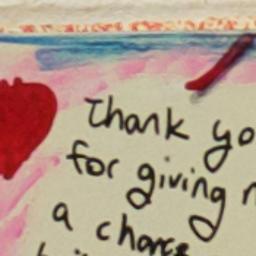 Thank yo
for giving
a chance